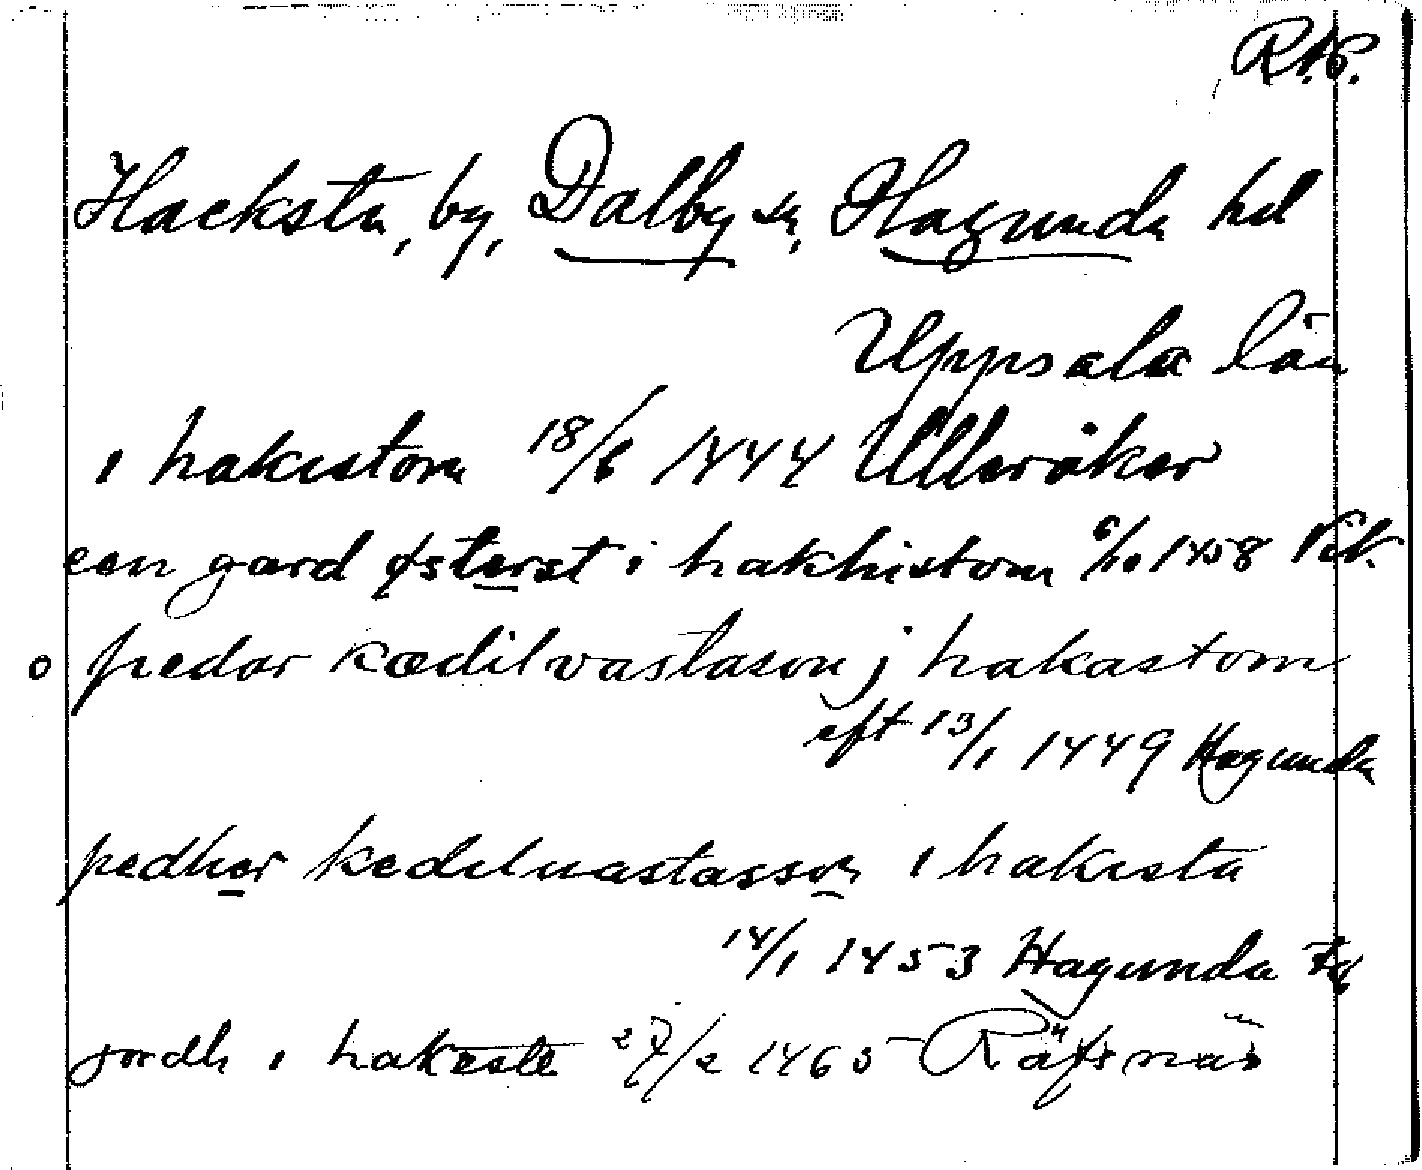 RAP.
Hacksta, by, Dalby sn, Hagunda hd
Uppsala län
i hakistom 18/6 1444 Ulleråker
een gard østerst i hakhistom 6/10 1458 Vik
o pedar kædilvastason j hakastom
eft 13/1 1449 Hagunda
pedher kedeluastasson i hakista
14/1 1453 Hagunda
jordh i hakeste 27/2 1465 Räfsnäs